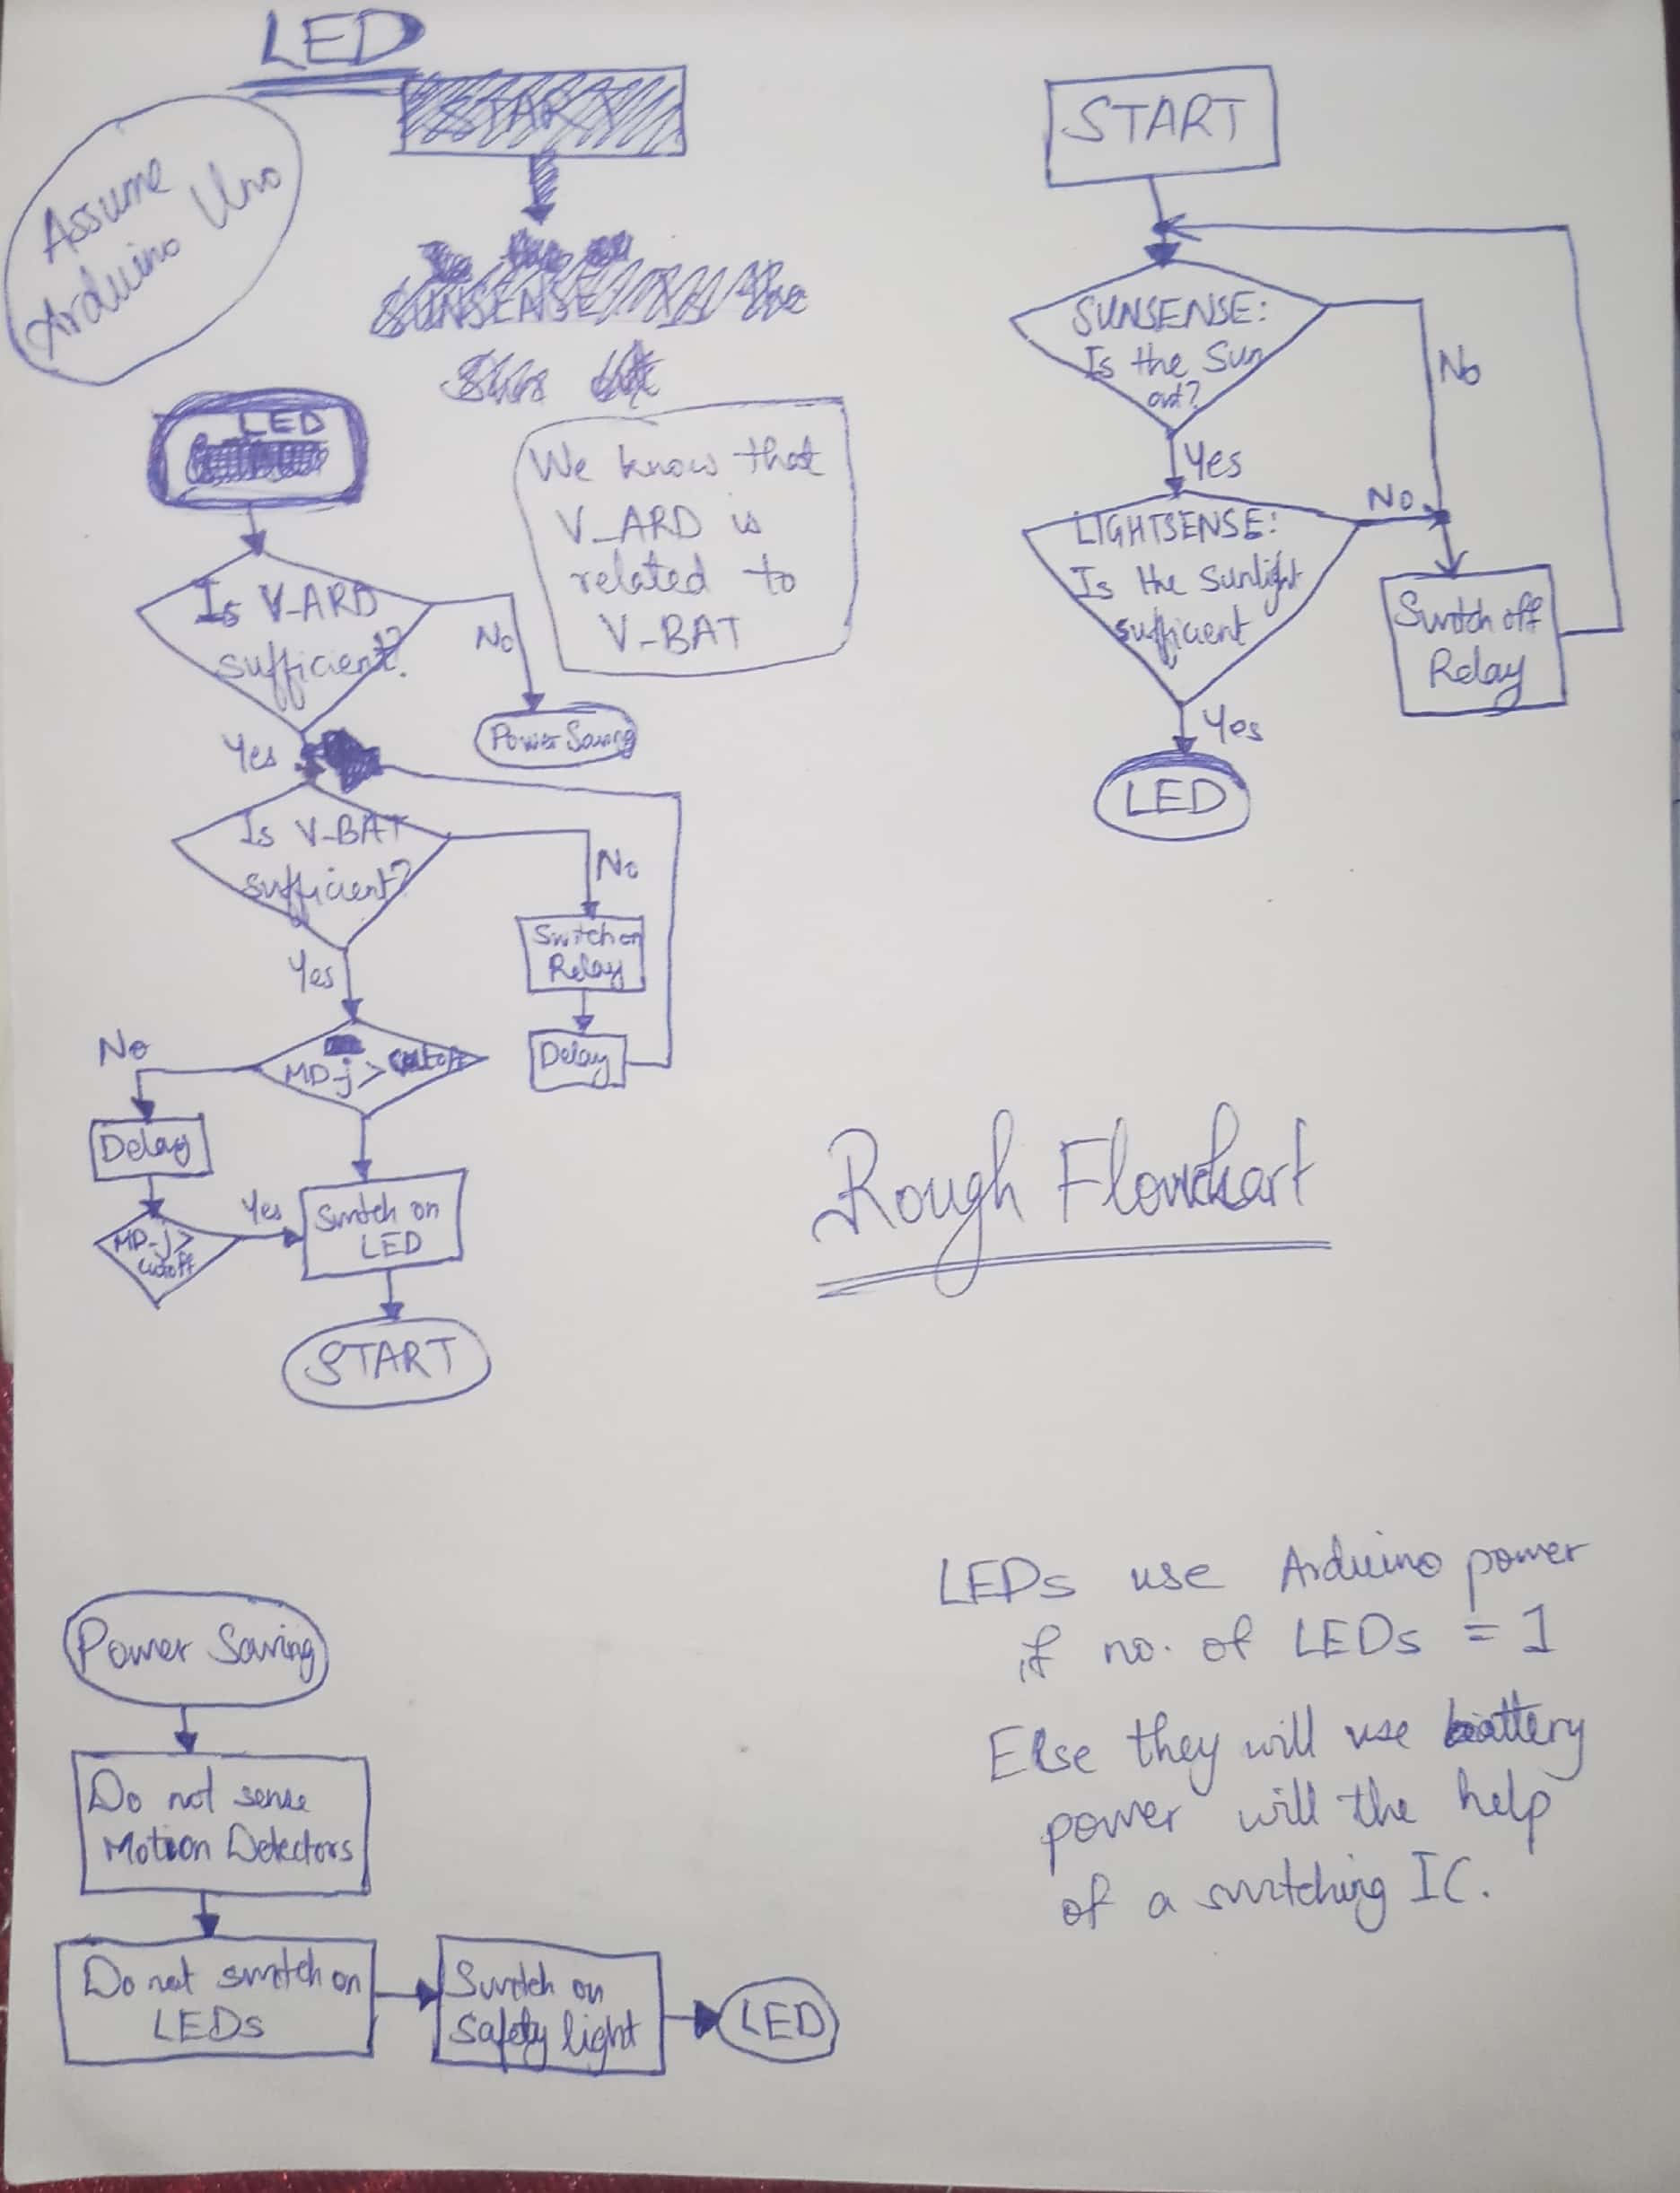 LED
START
Assume
Arduino Uno
SUNSENSE Is the
LED
We know that
V_ARD is
related to
V-BAT
Is V-ARD
sufficient?
No
Power Saving
Yes
Is V-BAT
sufficient?
No
Switch on
Relay
Delay
Yes
MD-j > cutoff
No
Delay
MD-j >
cutoff
Yes
Switch on
LED
START
START
SUNSENSE:
Is the Sun
out?
No
Yes
LIGHTSENSE:
Is the Sunlight
sufficient
No
Switch off
Relay
Yes
LED
Rough Flowchart
Power Saving
Do not sense
Motion Detectors
Do not switch on
LEDs
Switch on
Safety light
LED
LEDs use Arduino power
if no. of LEDs = 1
Else they will use battery
power will the help
of a switching IC.